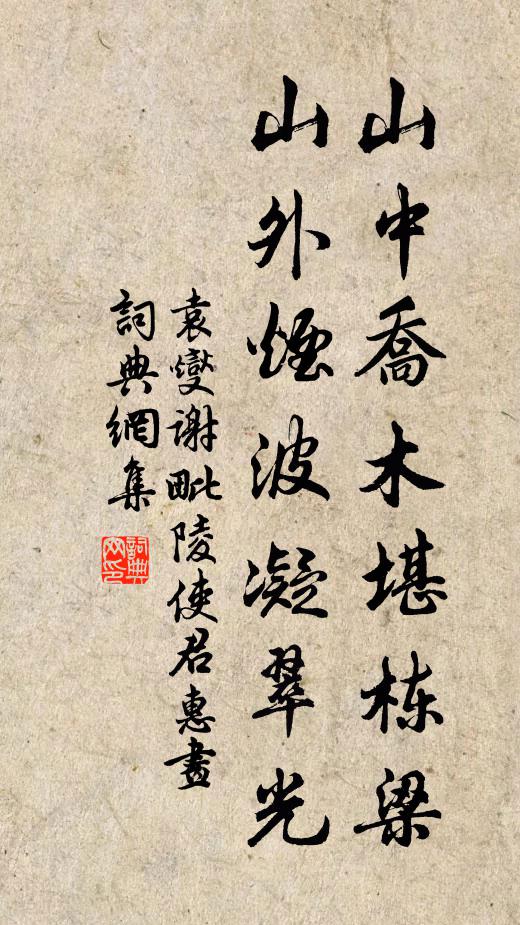 山中喬木堪栋梁
山外煙波凝翠光
袁燮谢毗陵使君惠畫
詞典網集
詞典网印